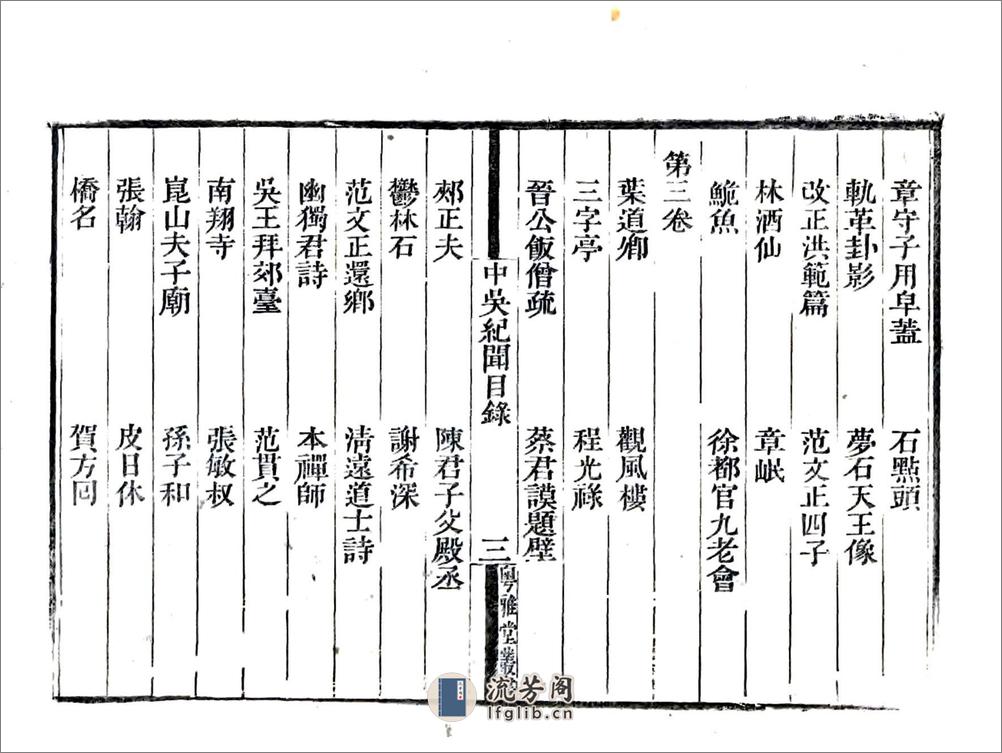 章守子用皁蓋　石㸃頭
軌革卦影　夢石天王像
改正洪範篇　范文正四子
林酒仙　章岷
鮠魚　徐都官九老會
第三卷
葉道卿　觀風樓
三字亭　程光祿
晉公飯僧疏　蔡君謨題壁
中吳紀聞目錄　三　粵雅堂叢
郟正夫　陳君子父殿丞
鬱林石　謝希深
范文正還鄉　清遠道士詩
幽獨君詩　本禪師
吳王拜郊臺　范貫之
南翔寺　張敏叔
崑山夫子廟　孫子和
張翰　皮日休
橋名　賀方回
流芳阁
lfglib.cn